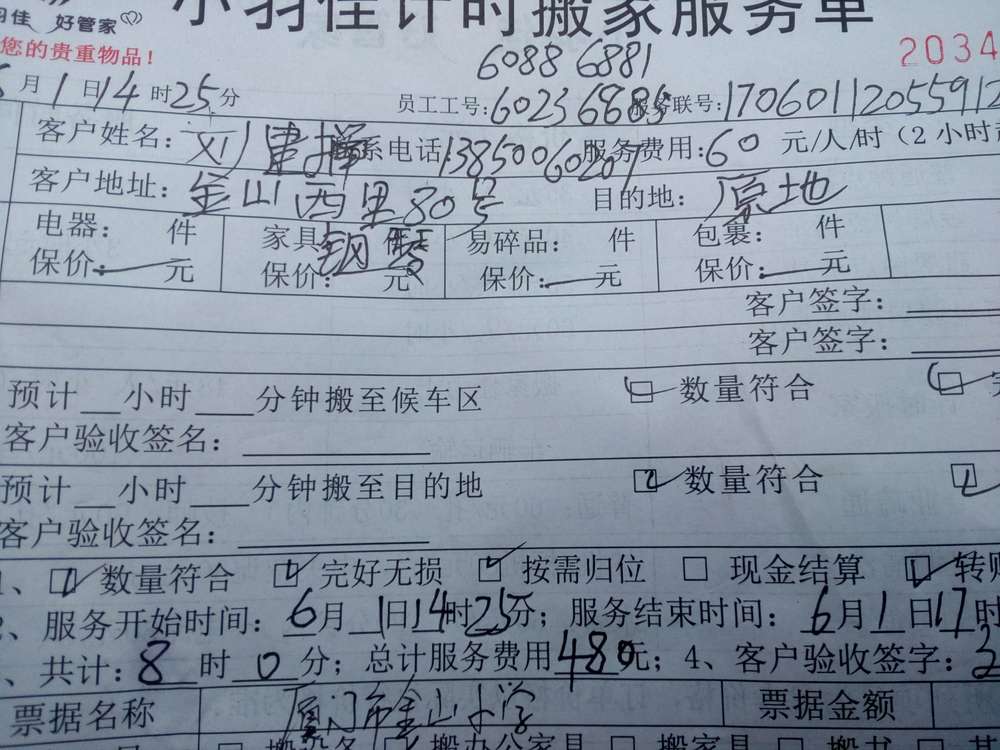 小羽佳计时搬家服务单
羽佳 好管家
您的贵重物品！
6088 6881
2034
6月1日14时25分 员工工号:60236885 服务联号:1706011205591 2
客户姓名: 刘建 联系电话 13850060207 服务费用:60 元/人/时（2小时
客户地址: 金山西里80号 目的地: 原地
电器: 件 家具 钢琴 件 易碎品: 件 包裹: 件
保价: 元 保价: 元 保价: 元 保价: 元
客户签字:
客户签字:
预计__小时___分钟搬至候车区 ☑ 数量符合
客户验收签名:
预计__小时___分钟搬至目的地 ☑ 数量符合
客户验收签名:
、☑ 数量符合 ☑ 完好无损 ☑ 按需归位 □ 现金结算 ☑ 转账
、服务开始时间: 6月1日14时25分; 服务结束时间: 6月1日17时
、共计: 8 时 0 分; 总计服务费用480元; 4、客户验收签字:
票据名称 厦门市金山小学 票据金额
搬办公家具 □ 搬家具 □ 搬书 □